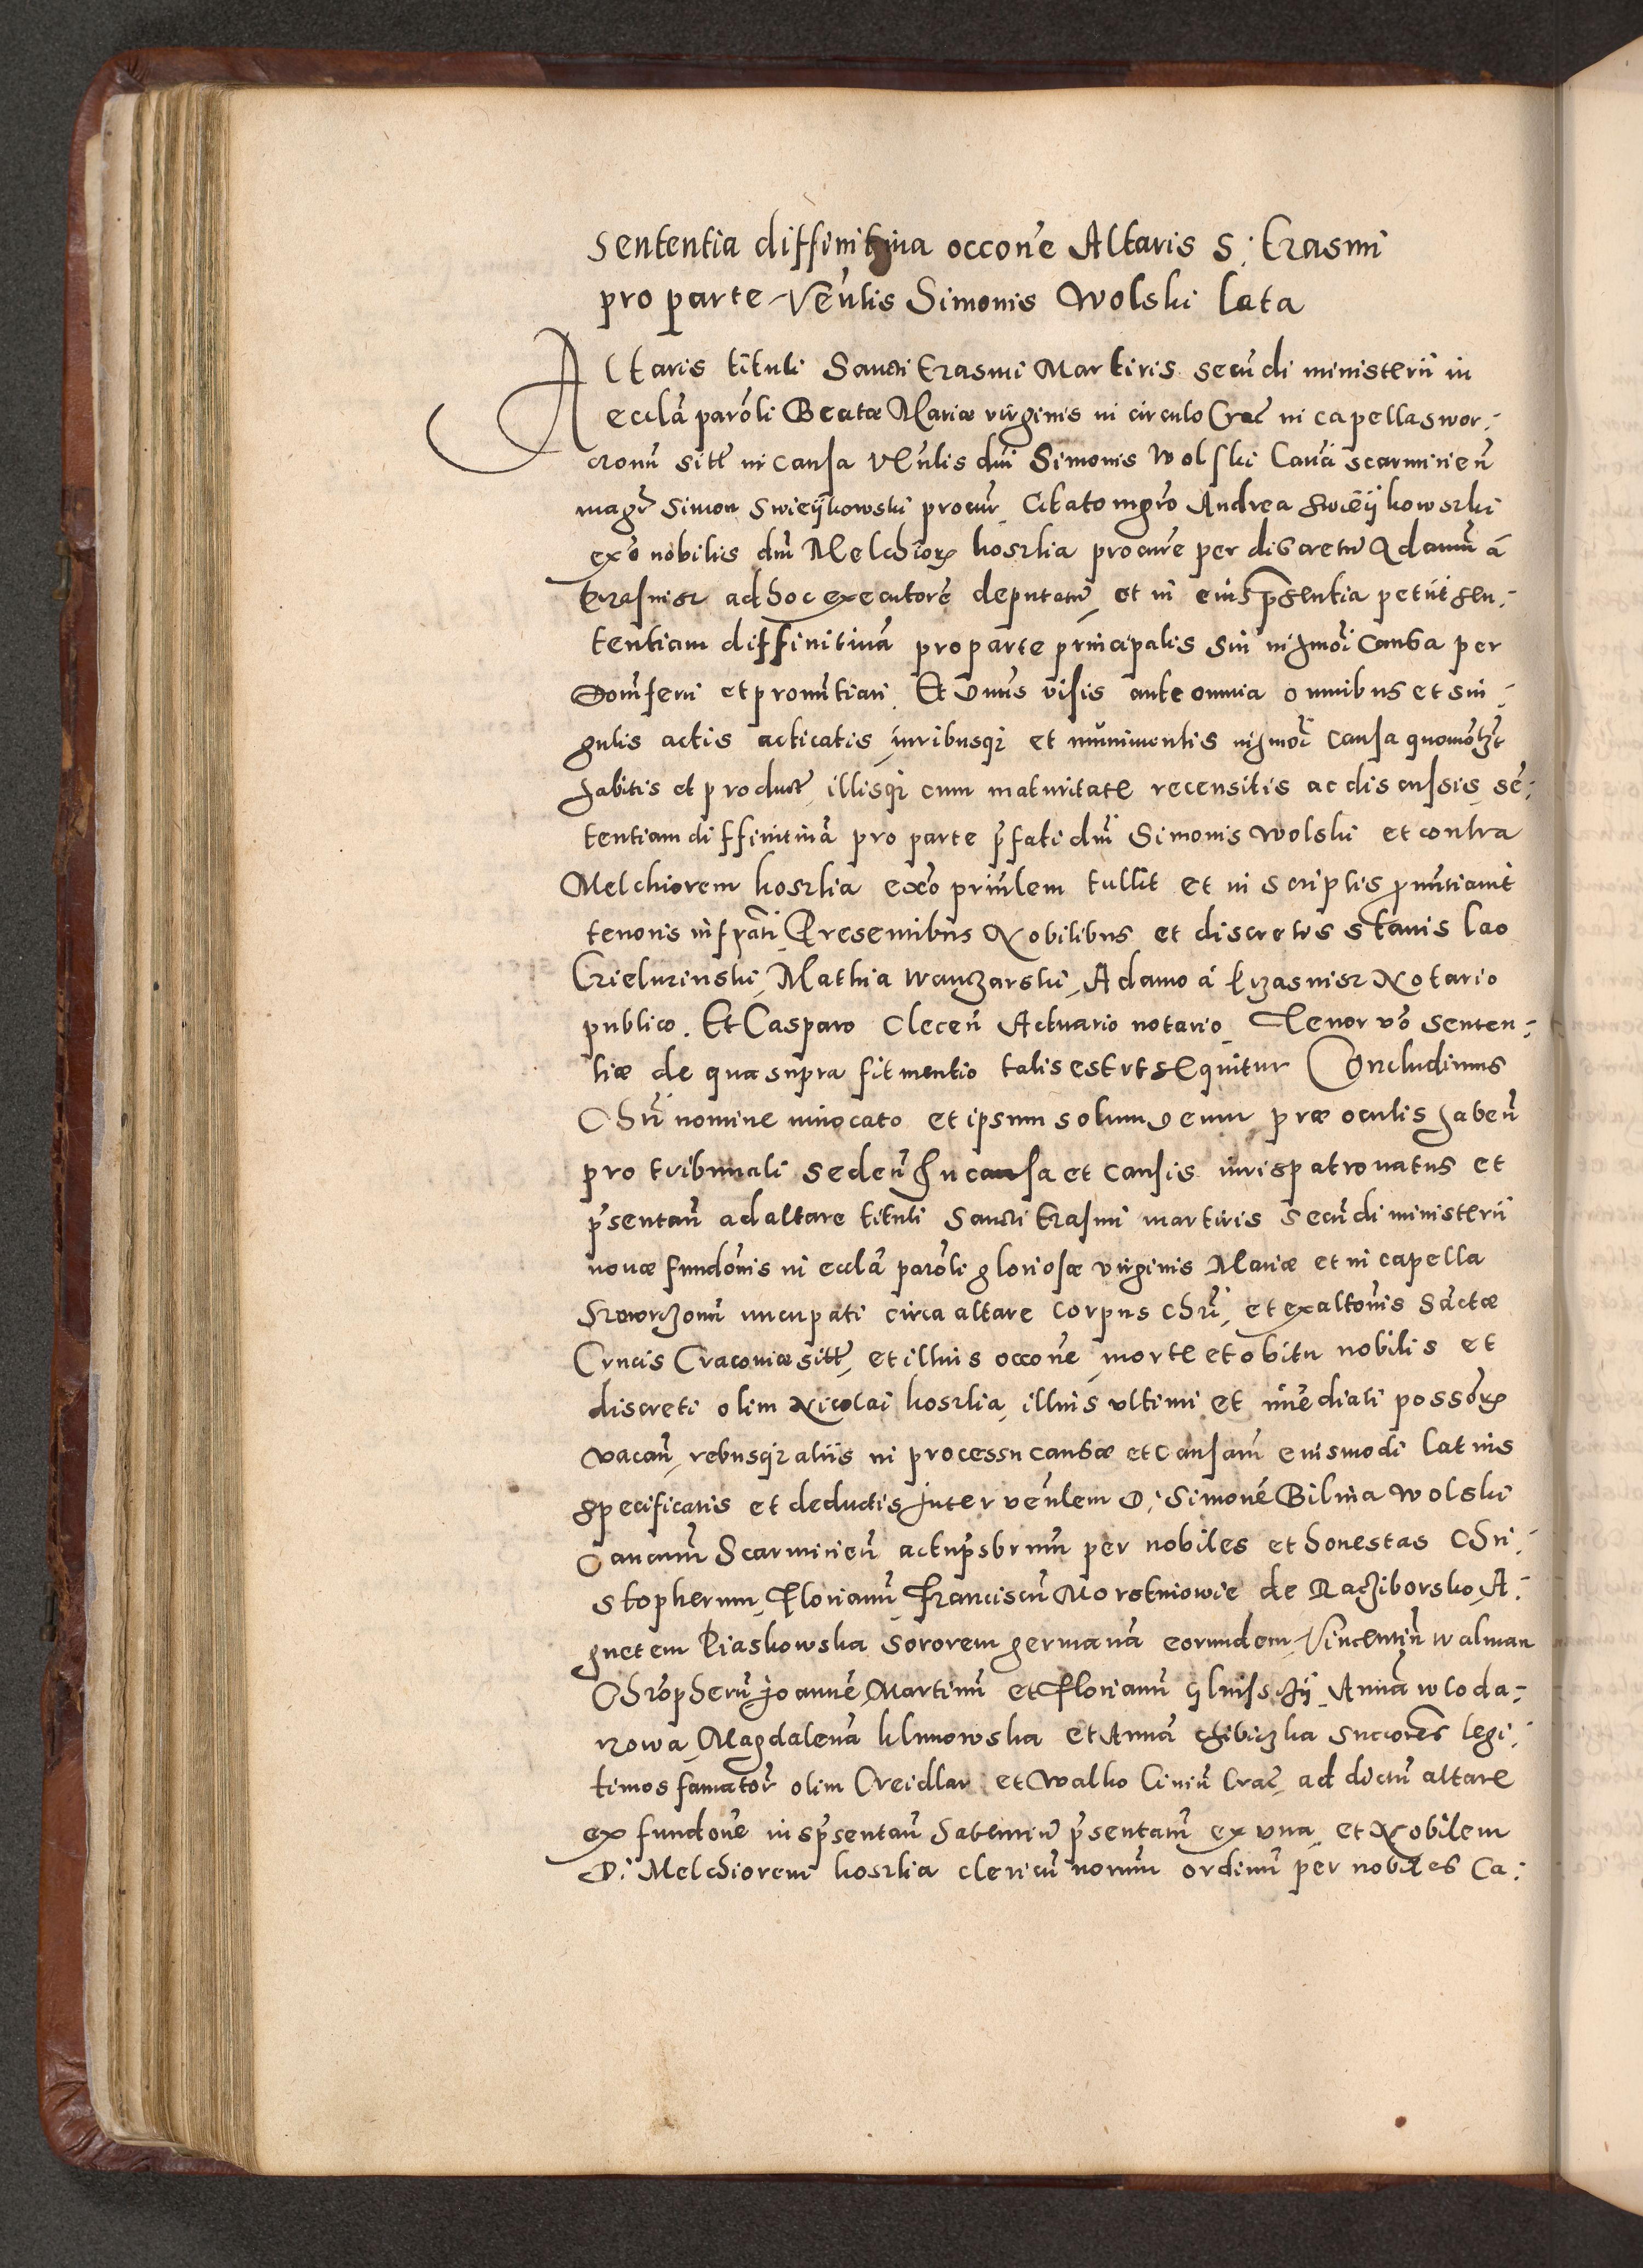 Sententia diffinitiua occone Altaris S: Erasmi
pro parte Venlis Simonis Wolski lata
Altaris tituli Sancti Erasmi Martiris secundi ministerii in
eccla paroli Beatæ Mariæ virginis in circulo Crac in capella swor:
cronu sitt in causa Venlis dni Simonis Wolski Canci scarmirien
magr Simon Swieijkowski procur citato mgro Andrea
exo nobilis dni Melchioris koszlia procure per discretu Adamu a
ad hoc executore deputatu et in eius pntia petiit sen:
tentiam diffinitiua pro parte principalis sui in hmoi causa per
Dom ferri et pronuntiari. Et Dnus visis ante omnia omnibus et sin:
gulis actis acticatis iuribusq et munimentis in hmoi causa quomolzt
habitis et product illisq cum maturitate recensitis ac discussis sen:
tentiam diffinitiua pro parte pfati dni Simonis Wolski et contra
Melchiorem koszlia exo priulem tullit et in scriptis pnuntiauit
tenoris infrati Presentibus Nobilibus et discretis Stanis lao
Mathia Adamo a Notario
publico. Et Casparo Clecen Actuario notario Tenor vo senten:
tiæ de qua supra fit mentio talis est vt sequitur Concludimus
Chri nomine inuocato et ipsum solum Deum præ oculis haben
pro tribunali seden In causa et causis iurispatronatus et
psentan ad altare tituli Sancti Erasmi martiris secundi ministerii
nouæ fundonis in eccla paroli gloriosæ virginis Mariæ et in capella
nuncupati circa altare Corpus Chri, et exaltonis Sactæ
Crucis Cracouiæ sitt, et illius occone morte et obitu nobilis et
discreti olim Nicolai koszlia, illius vltimi et imediati possoris
vacan, rebusq aliis in processu causæ et causaru eiusmodi latius
specificatis et deductis Inter venlem D: Simone Bilina Wolski
Canonicu Scarmirien actu psbrum per nobiles et honestas Chri:
stopherum, Florianu, Franciscu Morstiniowie de Raciborsko, A:
gnetem Piaskowska sororem germana eorundem, Vincentiu walman
Chropheru Joanne, Martinu et Florianu Anna wloda:
rzowa, Magdalena et Anna succores legi:
timos famator olim Creidlar et Walko Ciuiu Crac, ad dictu altare
ex fundone ius psentan habentiu psentatu ex vna et Nobilem
D: Melchiorem koszlia clericu ordinu per nobiles Ca: